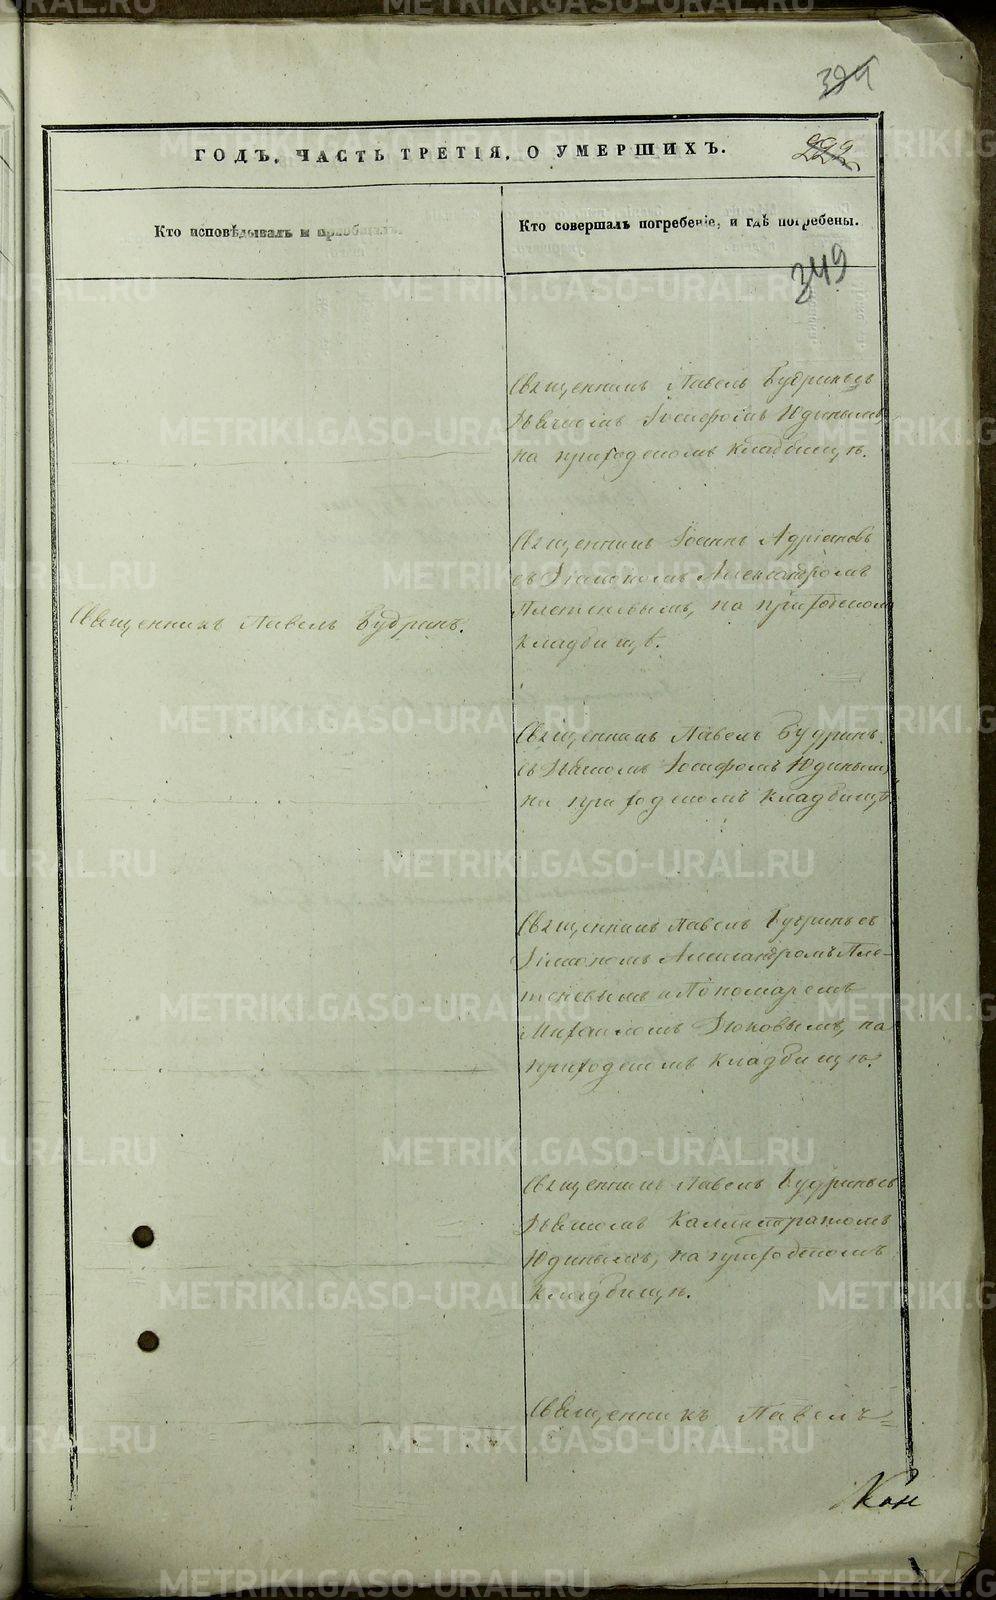 384
ГОДЪ. ЧАСТЬ ТРЕТІЯ, О УМЕРШИХЪ.
222
Кто исповѣдывалъ и пріобщалъ.
Кто совершалъ погребеніе, и гдѣ погребены.
349
Священникъ Павелъ Будринъ съ
Дьячкомъ Іосифомъ Юдинымъ,
на приходскомъ кладбищѣ.
Священникъ Іоаннъ Адріановъ
съ Діакономъ Александромъ
Плетеневымъ, на приходскомъ
кладбищѣ.
Священникъ Павелъ Будринъ.
Священникъ Павелъ Будринъ
съ Дьячкомъ Іосифомъ Юдинымъ,
на приходскомъ кладбищѣ
Священникъ Павелъ Будринъ съ
Діакономъ Александромъ Пле-
теневымъ и Пономаремъ
Михаиломъ, на
приходскомъ кладбищѣ.
Священникъ Павелъ Будринъ съ
Дьячкомъ Каллистратомъ
Юдинымъ, на приходскомъ
кладбищѣ.
Священникъ Павелъ=
Кон
METRIKI.GASO-URAL.RU